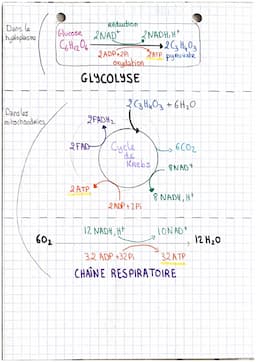 Dans le
hyaloplasme
réduction
Glucose 2NAD⁺ 2NADH,H⁺
C₆H₁₂O₆ 2C₃H₄O₃
2ADP+2Pi 2ATP pyruvate
oxydation
GLYCOLYSE
Dans les
mitochondries
2C₃H₄O₃ + 6H₂O
2FADH₂
2FAD
Cycle
de
Krebs
6CO₂
8NAD⁺
8 NADH,H⁺
2ATP
2ADP+2Pi
12NADH,H⁺ 10NAD⁺
6O₂ 12H₂O
32 ADP+32Pi 32ATP
CHAÎNE RESPIRATOIRE